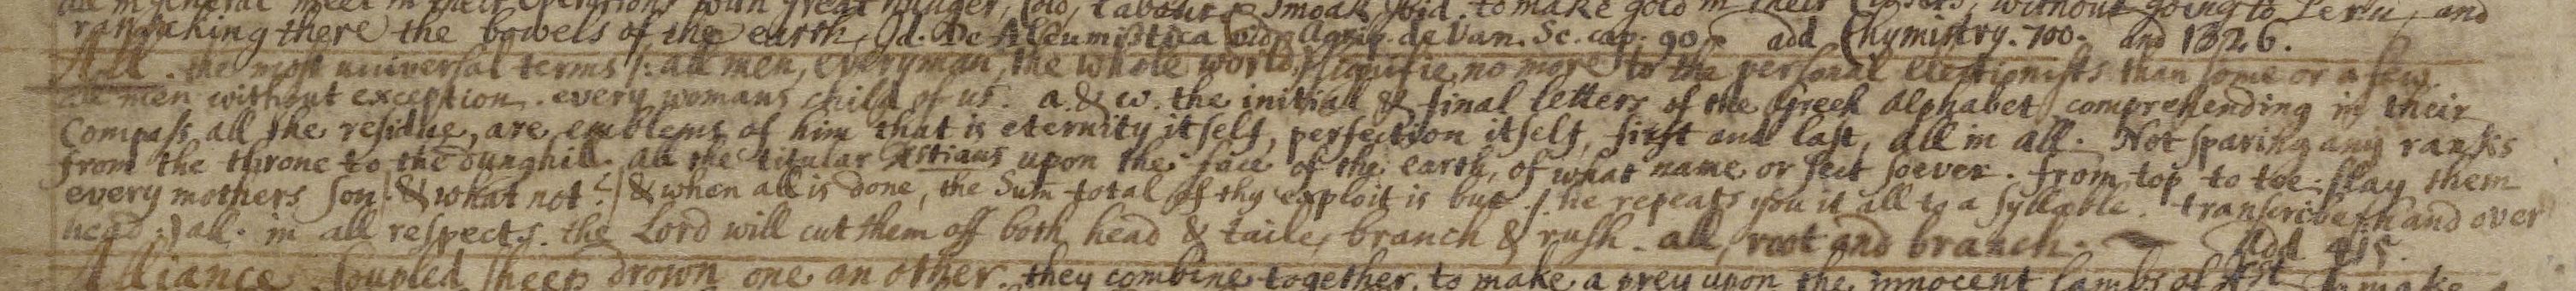 all in general meet in their operations with great hunger, cold, labour & smoak. Ibid. to make gold in their without going to Peru, and
ransaking there the bowels of the earth, Id. De Alcumistica vid. Agrip. de Van. Sc. cap. 90. add Chymistry. 700. and 1326.
All. the most universal terms /: all men, every man, the whole world, signifie no more to the personal Electionists than some or a few.
all men without exception. every womans child of us. a. & w. the initial & final letters of the Greek Alphabet, comprehending in their
Compass all the residue, are emblems of him that is eternity itself, perfection itself, first and last, all in all. Not sparing any ranks
from the throne to the dunghill. all the titular Xstians upon the face of the earth, of what name or sect soever. from top to toe. slay them
every mothers son /. & what not? / & when all is done, the Sum total of thy exploit is but /. he repeats you it all to a syllable. transcribe hand over
head :) all. in all respects. the Lord will cut them off both head & taile, branch & rush. all, root and branch. Add 415.
Alliance. Coupled sheep drown one another. they combine together, to make a prey upon the innocent lambs of Xst. To make a